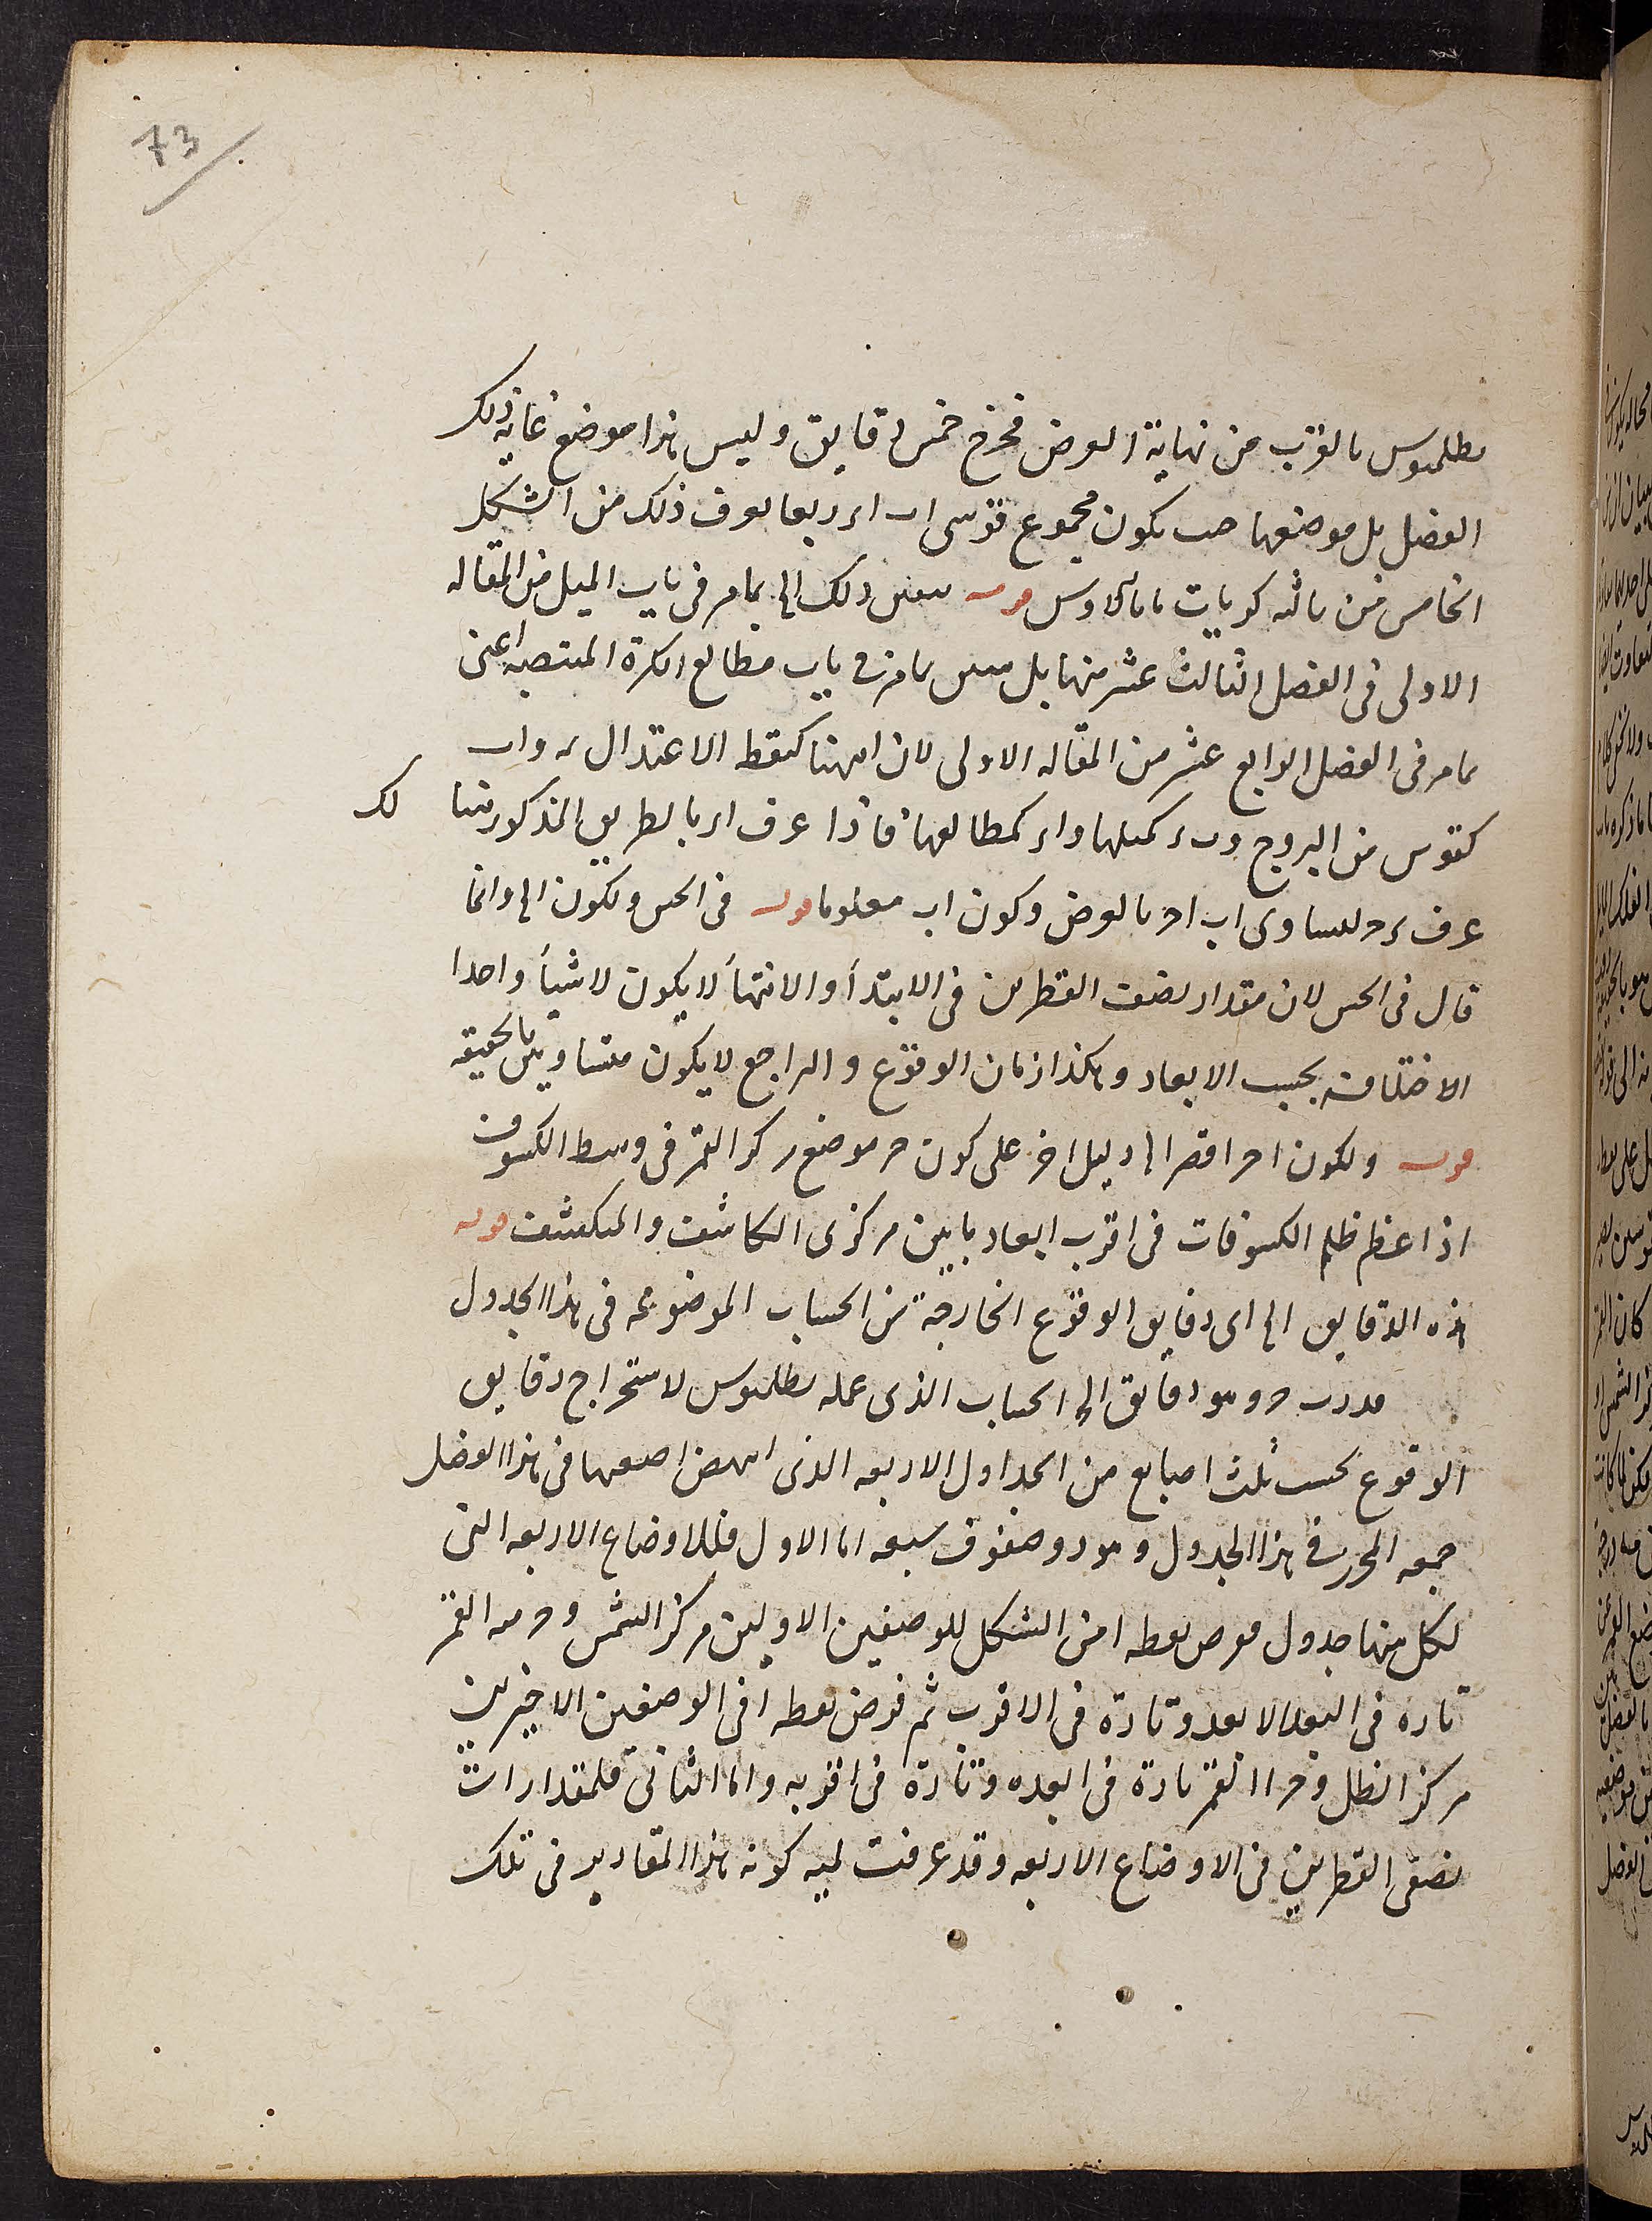 73
بطلميوس بالقرب من نهاية العرض فخرج خمس دقايق وليس هذا موضع غاية ذلك
الفضل بل موضعها حيث يكون مجموع قوسى اب ا‍ر ربعا يعرف ذلك من الشكل
الخامس من ثالثه كريات مانالاوس قوله يتبين ذلك الى بما مر فى باب الميل من المقاله
الاولى فى الفصل الثالث عشر منها بل يتبين بما مر فى باب مطالع الكرة المنتصبه اعنى
بما مر فى الفصل الرابع عشر من المقاله الاولى لان ا ههنا كنقطه الاعتدال ثمه و اب
كقوس من البروج و ب‍ر كميلها و ا‍ر كمطالعها فاذا عرف ا‍ر بالطريق المذكور هنا لك
عرف رح لتساوى اب اح بالفرض وكون اب معلوما قوله فى الحس ويكون الى وانما
قال فى الحس لان مقدار نصف القطرين فى الابتدأ والانتهأ لا يكون لا شيأ واحدا
الاختلافه بحسب الابعاد وهكذا زمان الوقوع والراجع لا يكون متساويين بالحقيقه
قوله ولكون اح اقصر الى دليل اخر على كون ح موضع مركز القمر فى وسط الكسوف
اذا عظم ظلم الكسوفات فى اقرب ابعاد ما بين مركزى الكاشف والمنكشف قوله
هذه الدقايق الى اى دقايق الوقوع الخارجة من الحساب الموضوعه فى هذا الجدول
ح وهو دقايق الى الحساب الذى عمله بطلميوس لاستخراج دقايق
الوقوع بحسب ثلث اصابع من الجداول الاربعه الذى اصعها فى هذا الفصل
جمعه المحرر فى هذا الجدول وهو ذو صفوف سبعه اما الاول فللاوضاع الاربعه التى
لكل منها جدول فرض نقطه ا من الشكل للوضعين الاولين مركز الشمس و ح القمر
تاره فى البعد الابعد وتارة فى الاقرب ثم فرض نقطه ا فى الوضعين الاخيرين
مركز الظل و ح القمر تارة فى ابعده وتارة فى اقربه واما الثانى فلمقدارات
نصفى القطرين فى الاوضاع الاربعه وقد عرفت لميه كونه هذا المقادير فى تلك